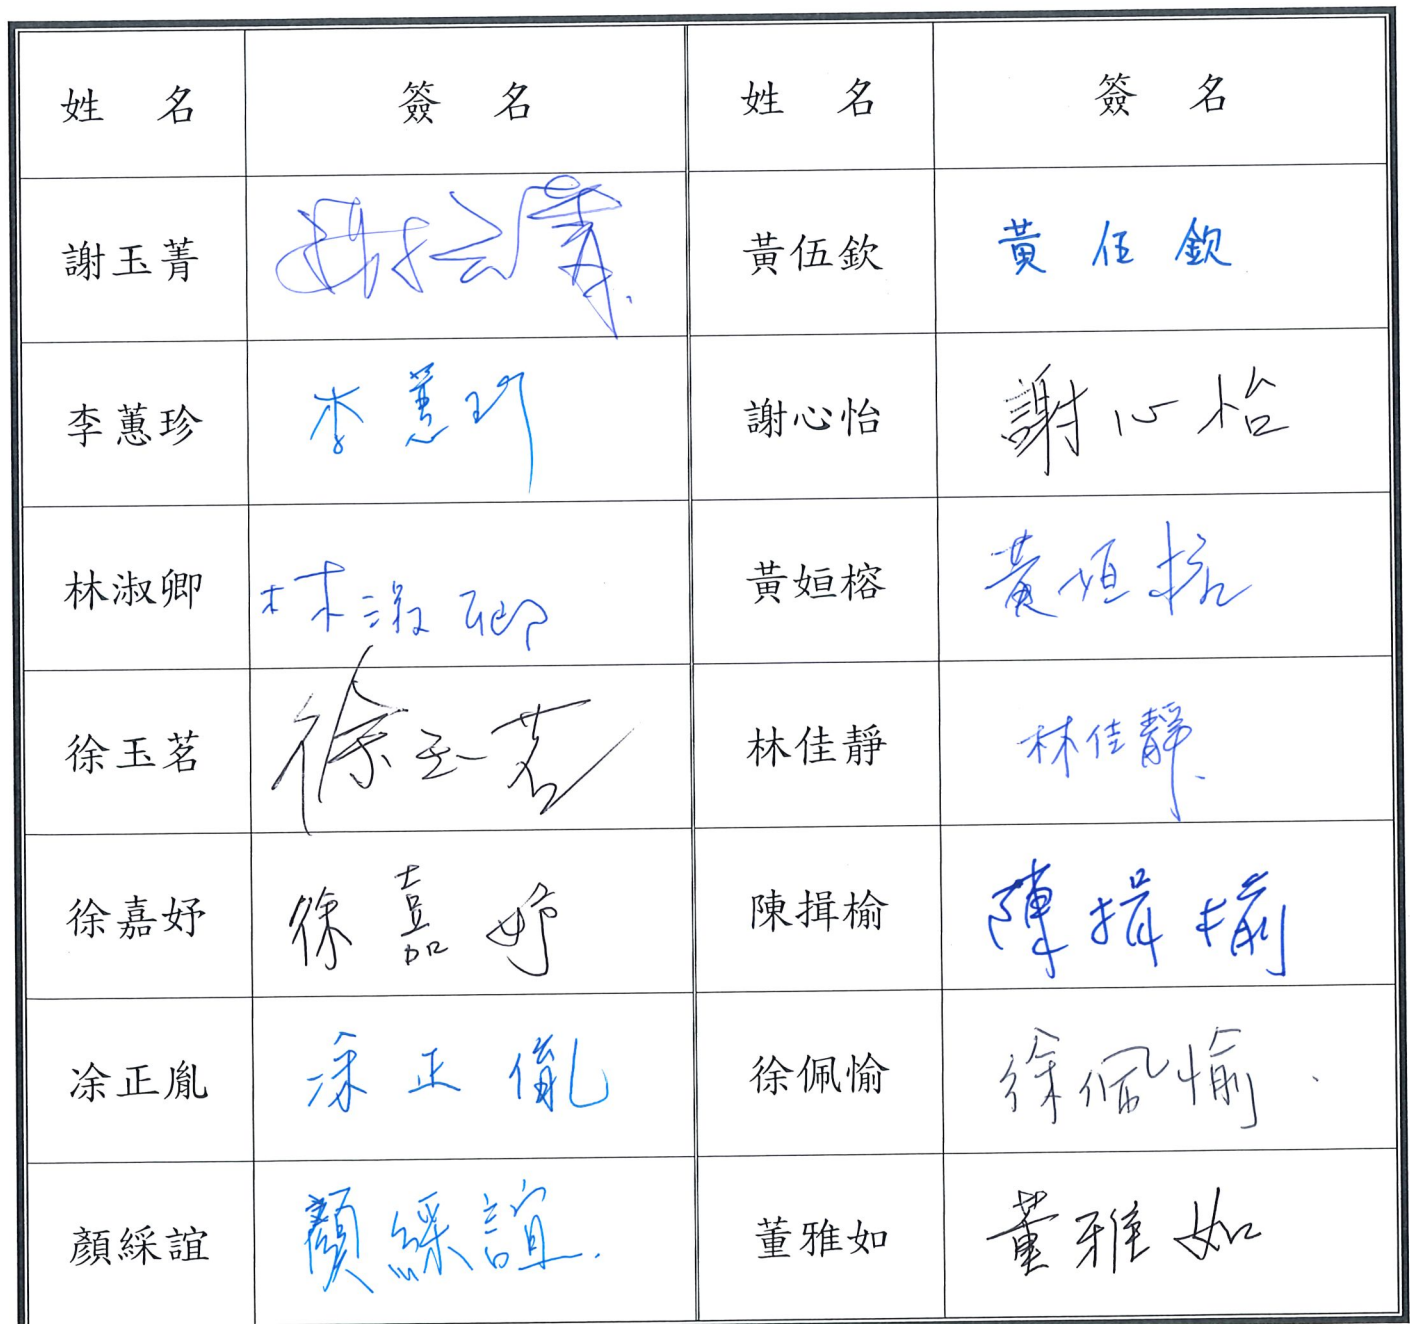 姓 名 簽 名 姓 名 簽 名
謝玉菁 謝玉菁 黃伍欽 黃伍欽
李蕙珍 李蕙珍 謝心怡 謝心怡
林淑卿 林淑卿 黃姮榕 黃姮榕
徐玉茗 徐玉茗 林佳靜 林佳靜
徐嘉妤 徐嘉妤 陳揖榆 陳揖榆
凃正胤 凃正胤 徐佩愉 徐佩愉
顏綵誼 顏綵誼 董雅如 董雅如